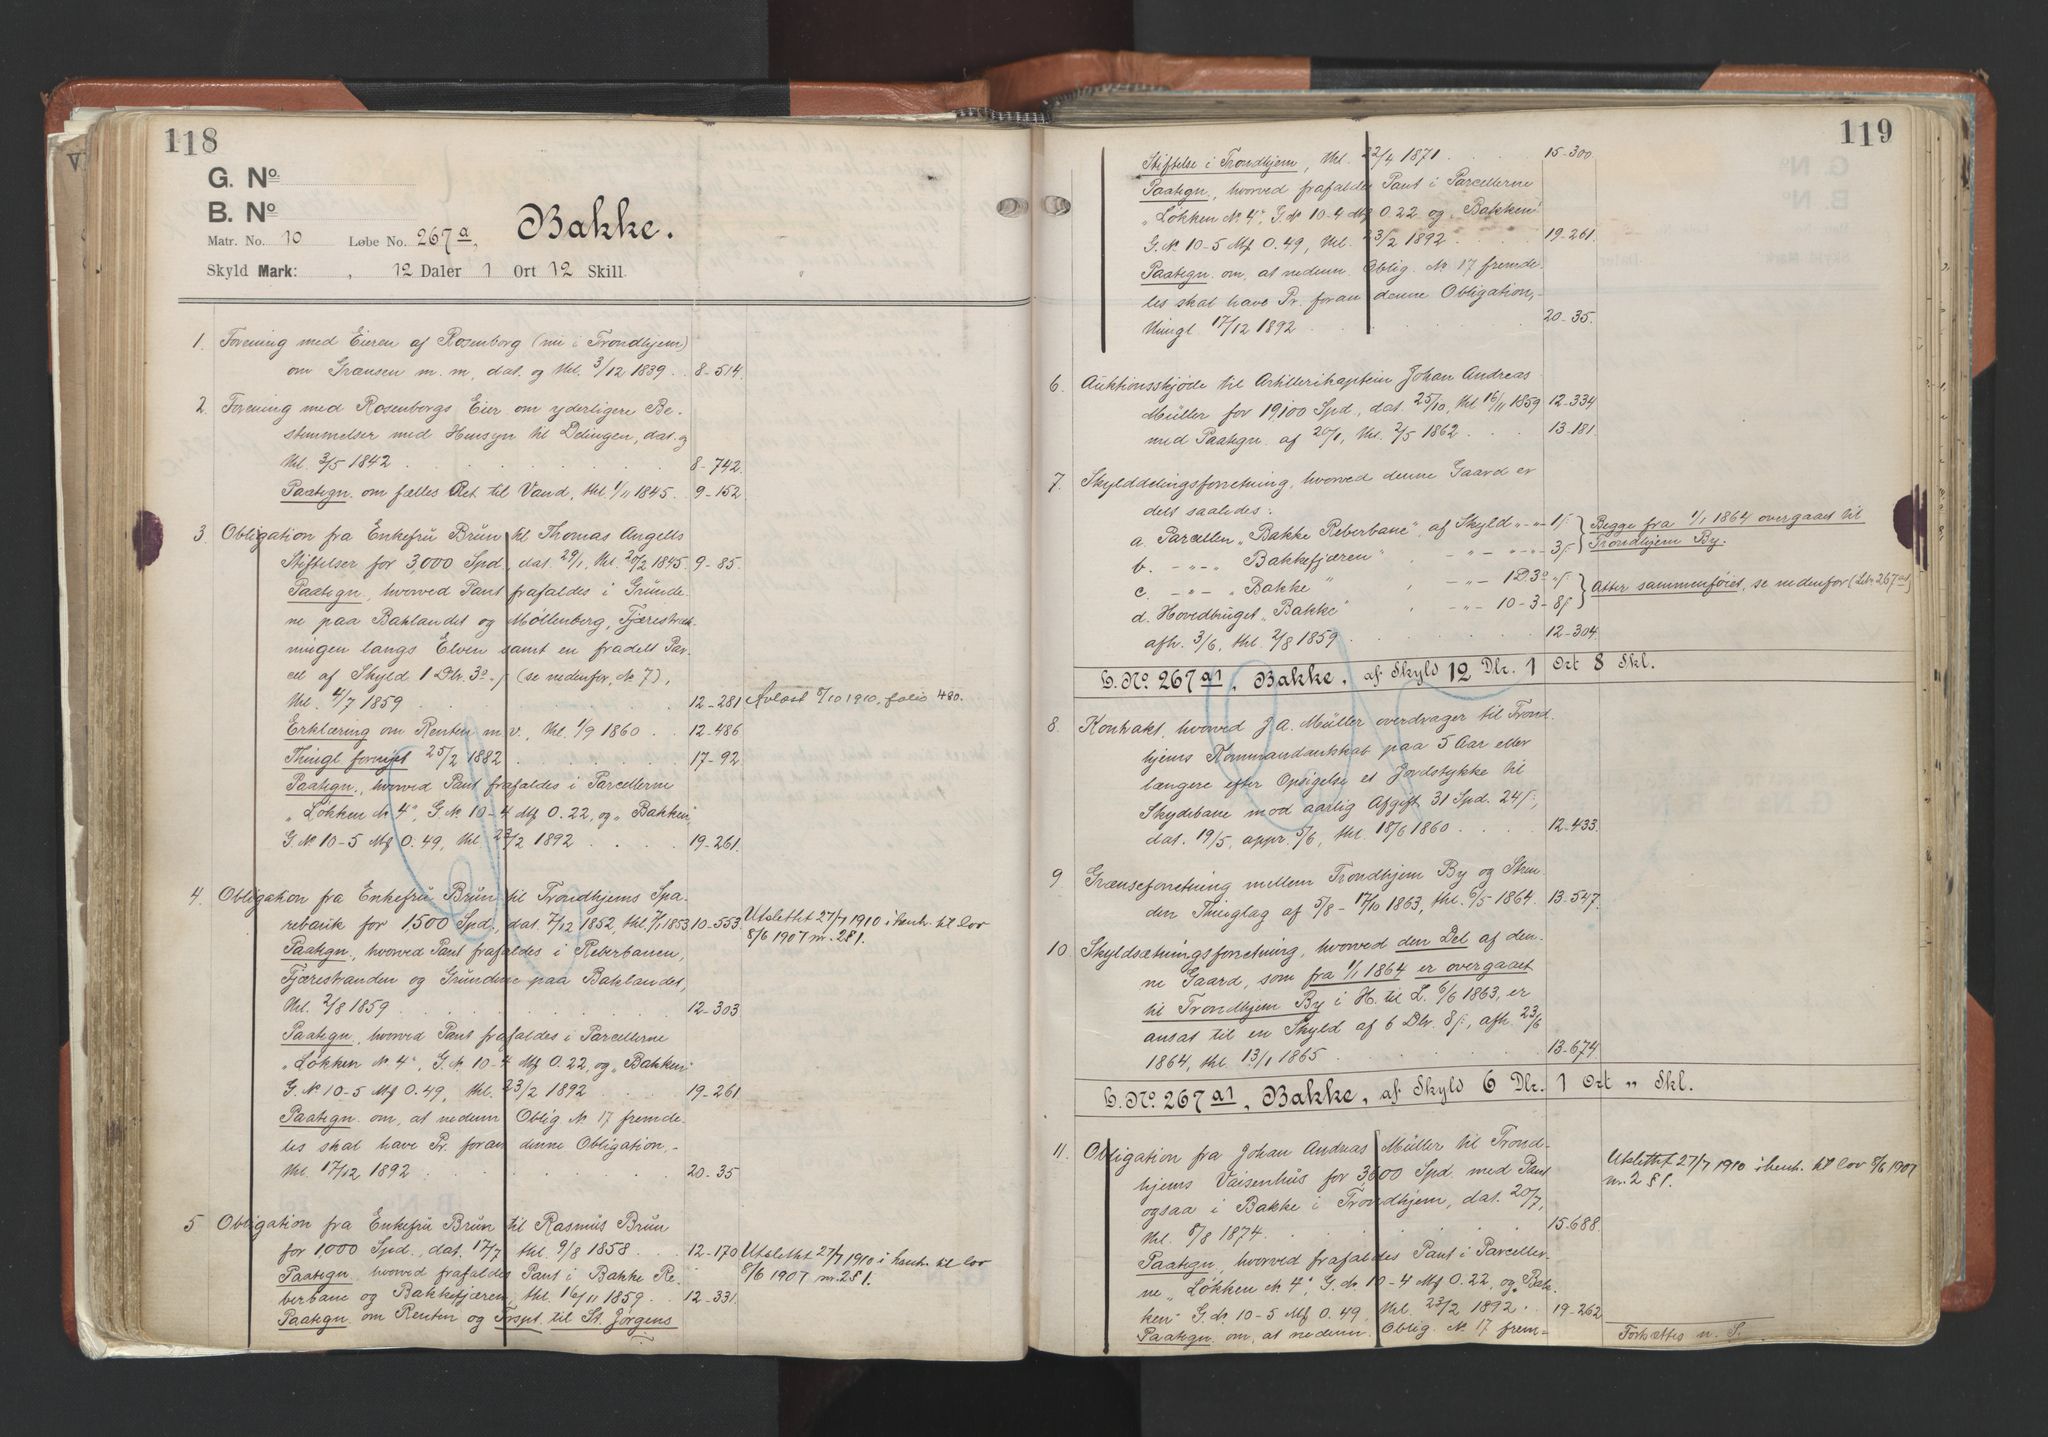 118
G. No.
B. No.
Matr. No. 10 Løbe No. 267a, Bakke.
Skyld Mark: , 12 Daler 1 Ort 12 Skill.
1. Forening med Eieren af Rosenborg (nu i Trondhjem)
om Grænsen m. m, dat. og thl. 3/12 1839. . 8-514.
2. Forening med Rosenborgs Eier om yderligere Be-
stemmelser med Hensyn til Delingen, dat. og
thl. 3/5 1842 . . . . . 8-742.
Paategn. om fælles Ret til Vand, thl. 1/11 1845. 9-152
3. Obligation fra Enkefru Brun til Thomas Angells
Stiftelser for 3,000 Spd., dat. 29/1, thl. 20/2 1845. 9-85.
Paategn., hvorved Pant frafaldes i Grunde-
ne paa Baklandet og Møllenberg, Fjærestræk-
ningen langs Elven samt en fradelt Par-
cel af Skyld 1 Dlr. 3 o - ƒ (se nedenfor, No 7),
thl. 4/7 1859 . . . 12-281 Avlæst 5/10 1910, folio 480.
Erklæring om Renten m. v., thl. 1/9 1860 . . 12-486
Thingl. fornyet 25/2 1882 . . . . 17-92
Paategn., hvorved Pant frafaldes i Parcellerne
"Løkken No 4", G. No 10-4 Mk 0.22, og "Bakken",
G. No 10-5 Mk 0.49, thl. 23/2 1892 . . . . 19-261.
4. Obligation fra Enkefru Brun til Trondhjems Spa-
rebank for 1,500 Spd., dat. 7/12 1852, thl. 7/1 1853 10-553. Utslettet 27/7 1910 i henh. til lov
8/6 1907 nr. 281.
Paategn., hvorved Pant frafaldes i Reberbanen,
Fjærestranden og Grundene paa Baklandet,
thl. 2/8 1859 . . . . 12-303
Paategn., hvorved Pant frafaldes i Parcellerne
"Løkken No 4", G. No 10-4 Mk 0.22, og "Bakken",
G. No 10-5 Mk 0.49, thl. 23/2 1892 . . . 19-261
Paategn. om, at nedenn. Oblig. No 17 fremde-
les skal have Pr. foran denne Obligation, -
thl. 17/12 1892 . . . . 20-35
5. Obligation fra Enkefru Brun til Rasmus Brun
for 1,000 Spd. dat. 17/7, thl. 9/8 1858 . . 12-170 Utslettet 27/7 1910 i henh. til lov
8/6 1907 nr. 281.
Paategn., hvorved frafaldes Pant i Bakke Re-
berbane og Bakkefjæren, thl. 16/11 1859. . . 12-331.
Paategn om Renten og Trspt. til St. Jørgens
119
Stiftelse i Trondhjem, thl. 22/4 1871 . . . . 15-300.
Paategn., hvorved frafaldes Pant i Parcellerne
"Løkken No 4", G. No 10-4 Mk 0.22 og "Bakken"
G. No 10-5 Mk 0.49, thl. 23/2 1892 . . . . 19-261.
Paategn. om, at nedenn. Oblig. No 17 fremde-
les skal have Pr. foran denne Obligation, -
thingl. 17/12 1892 . . . . 20-35.
6. Auktionsskjøde til Artillerikaptein Johan Andreas
Müller for 19100 Spd., dat. 25/10, thl 16/11 1859 12-334
med Paategn. af 20/1, thl. 2/5 1862 . . . 13-181.
7. Skylddelingsforretning, hvorved denne Gaard er
delt saaledes:
a. Parcellen "Bakke Reberbane", af Skyld "-"- 1ƒ. Begge fra 1/1 1864 overgaaet til
b. -"-"- "Bakkefjæren" -"- "-"- 3ƒ. Trondhjem By.
c. -"-"- "Bakke" , -"- 1D. 3 o "ƒ.
d. Hovedbruget "Bakke" , -"- 10-3-8ƒ. Atter sammenføiet, se nedenfor (Lbn 267a1)
afh. 3/6, thl. 2/8 1859 . . . . 12-304.
L. No. 267a1, Bakke, af Skyld 12 Dlr. 1 Ort 8 Skl.
8. Kontrakt, hvorved J. A. Müller overdrager til Trond-
hjems Kommandantskab paa 5 Aar eller
længere efter Opsigelse et Jordstykke til
Skydebane mod aarlig Afgift 31 Spd. 24ƒ.,
dat. 19/5, appr. 5/6, thl. 18/6 1860 . . . . 12-433.
9. Grænseforretning mellem Trondhjem By og Strin-
den Thinglag af 5/8 - 17/10 1863, thl. 6/5 1864. 13-547.
10. Skyldsætningsforretning, hvorved den Del af den-
ne Gaard, som fra 1/1 1864 er overgaaet
til Trondhjem By i H. til L. 6/6 1863, er
ansat til en Skyld af 6 Dlr. 8ƒ., afh. 23/6
1864, thl. 13/1 1865 . . . . 13-674.
L. No. 267a1, Bakke, af Skyld 6 Dlr. 1 Ort " Skl.
11. Obligation fra Johan Andreas Müller til Trond-
hjems Vaisenhus for 3,600 Spd. med Pant
ogsaa i Bakke i Trondhjem, dat. 20/7,
thl. 8/8 1874. . . . . 15-688.
Utslettet 27/7 1910 i henh. til lov 8/6 1907
nr. 281.
Paategn., hvorved frafaldes Pant i Parceller-
ne "Løkken No 4", G. No 10-4 Mk 0.22, og "Bak-
ken" G. No 10-5 Mk 0.49, thl. 23/2 1892 . 19-262
Paategn. om, at nedenn. Oblig. No 17 frem-
Fortsættes n. S.